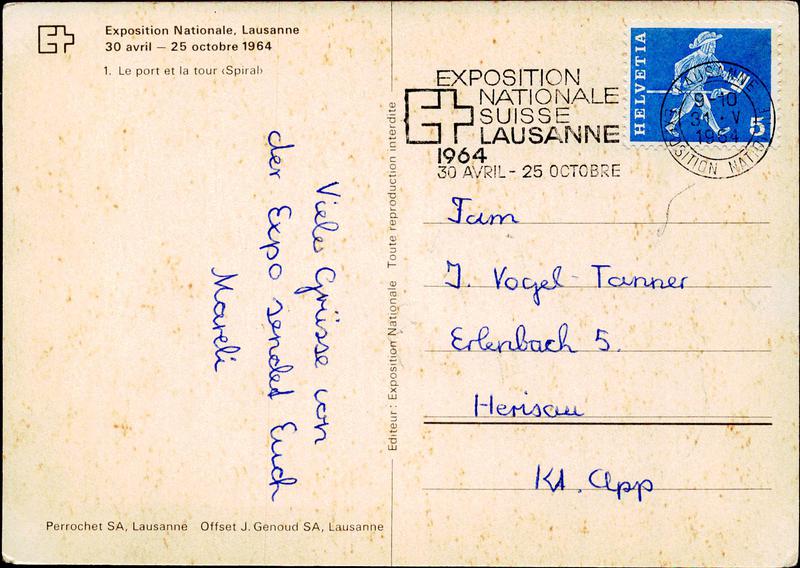 Exposition Nationale, Lausanne
30 avril – 25 octobre 1964
1. Le port et la tour ‹Spiral›
Viele Grüsse von
der Expo sendet Euch
Mareli
Perrochet SA, Lausanne Offset J. Genoud SA, Lausanne
Editeur: Exposition Nationale Toute reproduction interdite
EXPOSITION
NATIONALE
SUISSE
LAUSANNE
1964
30 AVRIL - 25 OCTOBRE
HELVETIA
5
LAUSANNE
9-10
31.V
1964
EXPOSITION NATIONALE
Fam
J. Vogel-Tanner
Erlenbach 5.
Herisau
Kt. App